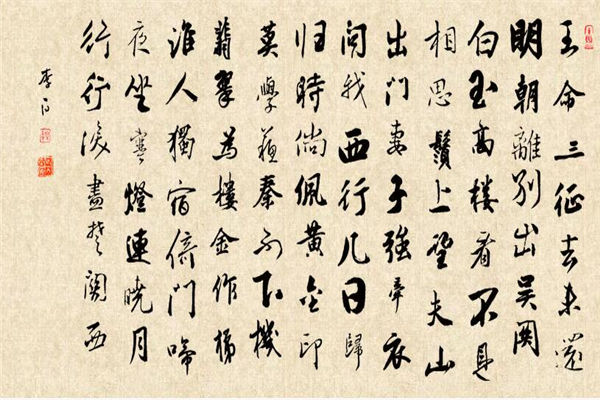 王命三征去未還
明朝離別出吴関
白玉高楼看不見
相思鬚上望夫山
出门妻子强牵衣
问我西行几日歸
归時倘佩黄金印
莫學蘓秦不下機
翡翠為樓金作梯
谁人獨宿倚门啼
夜坐寒燈連曉月
行行淚盡楚関西
李白